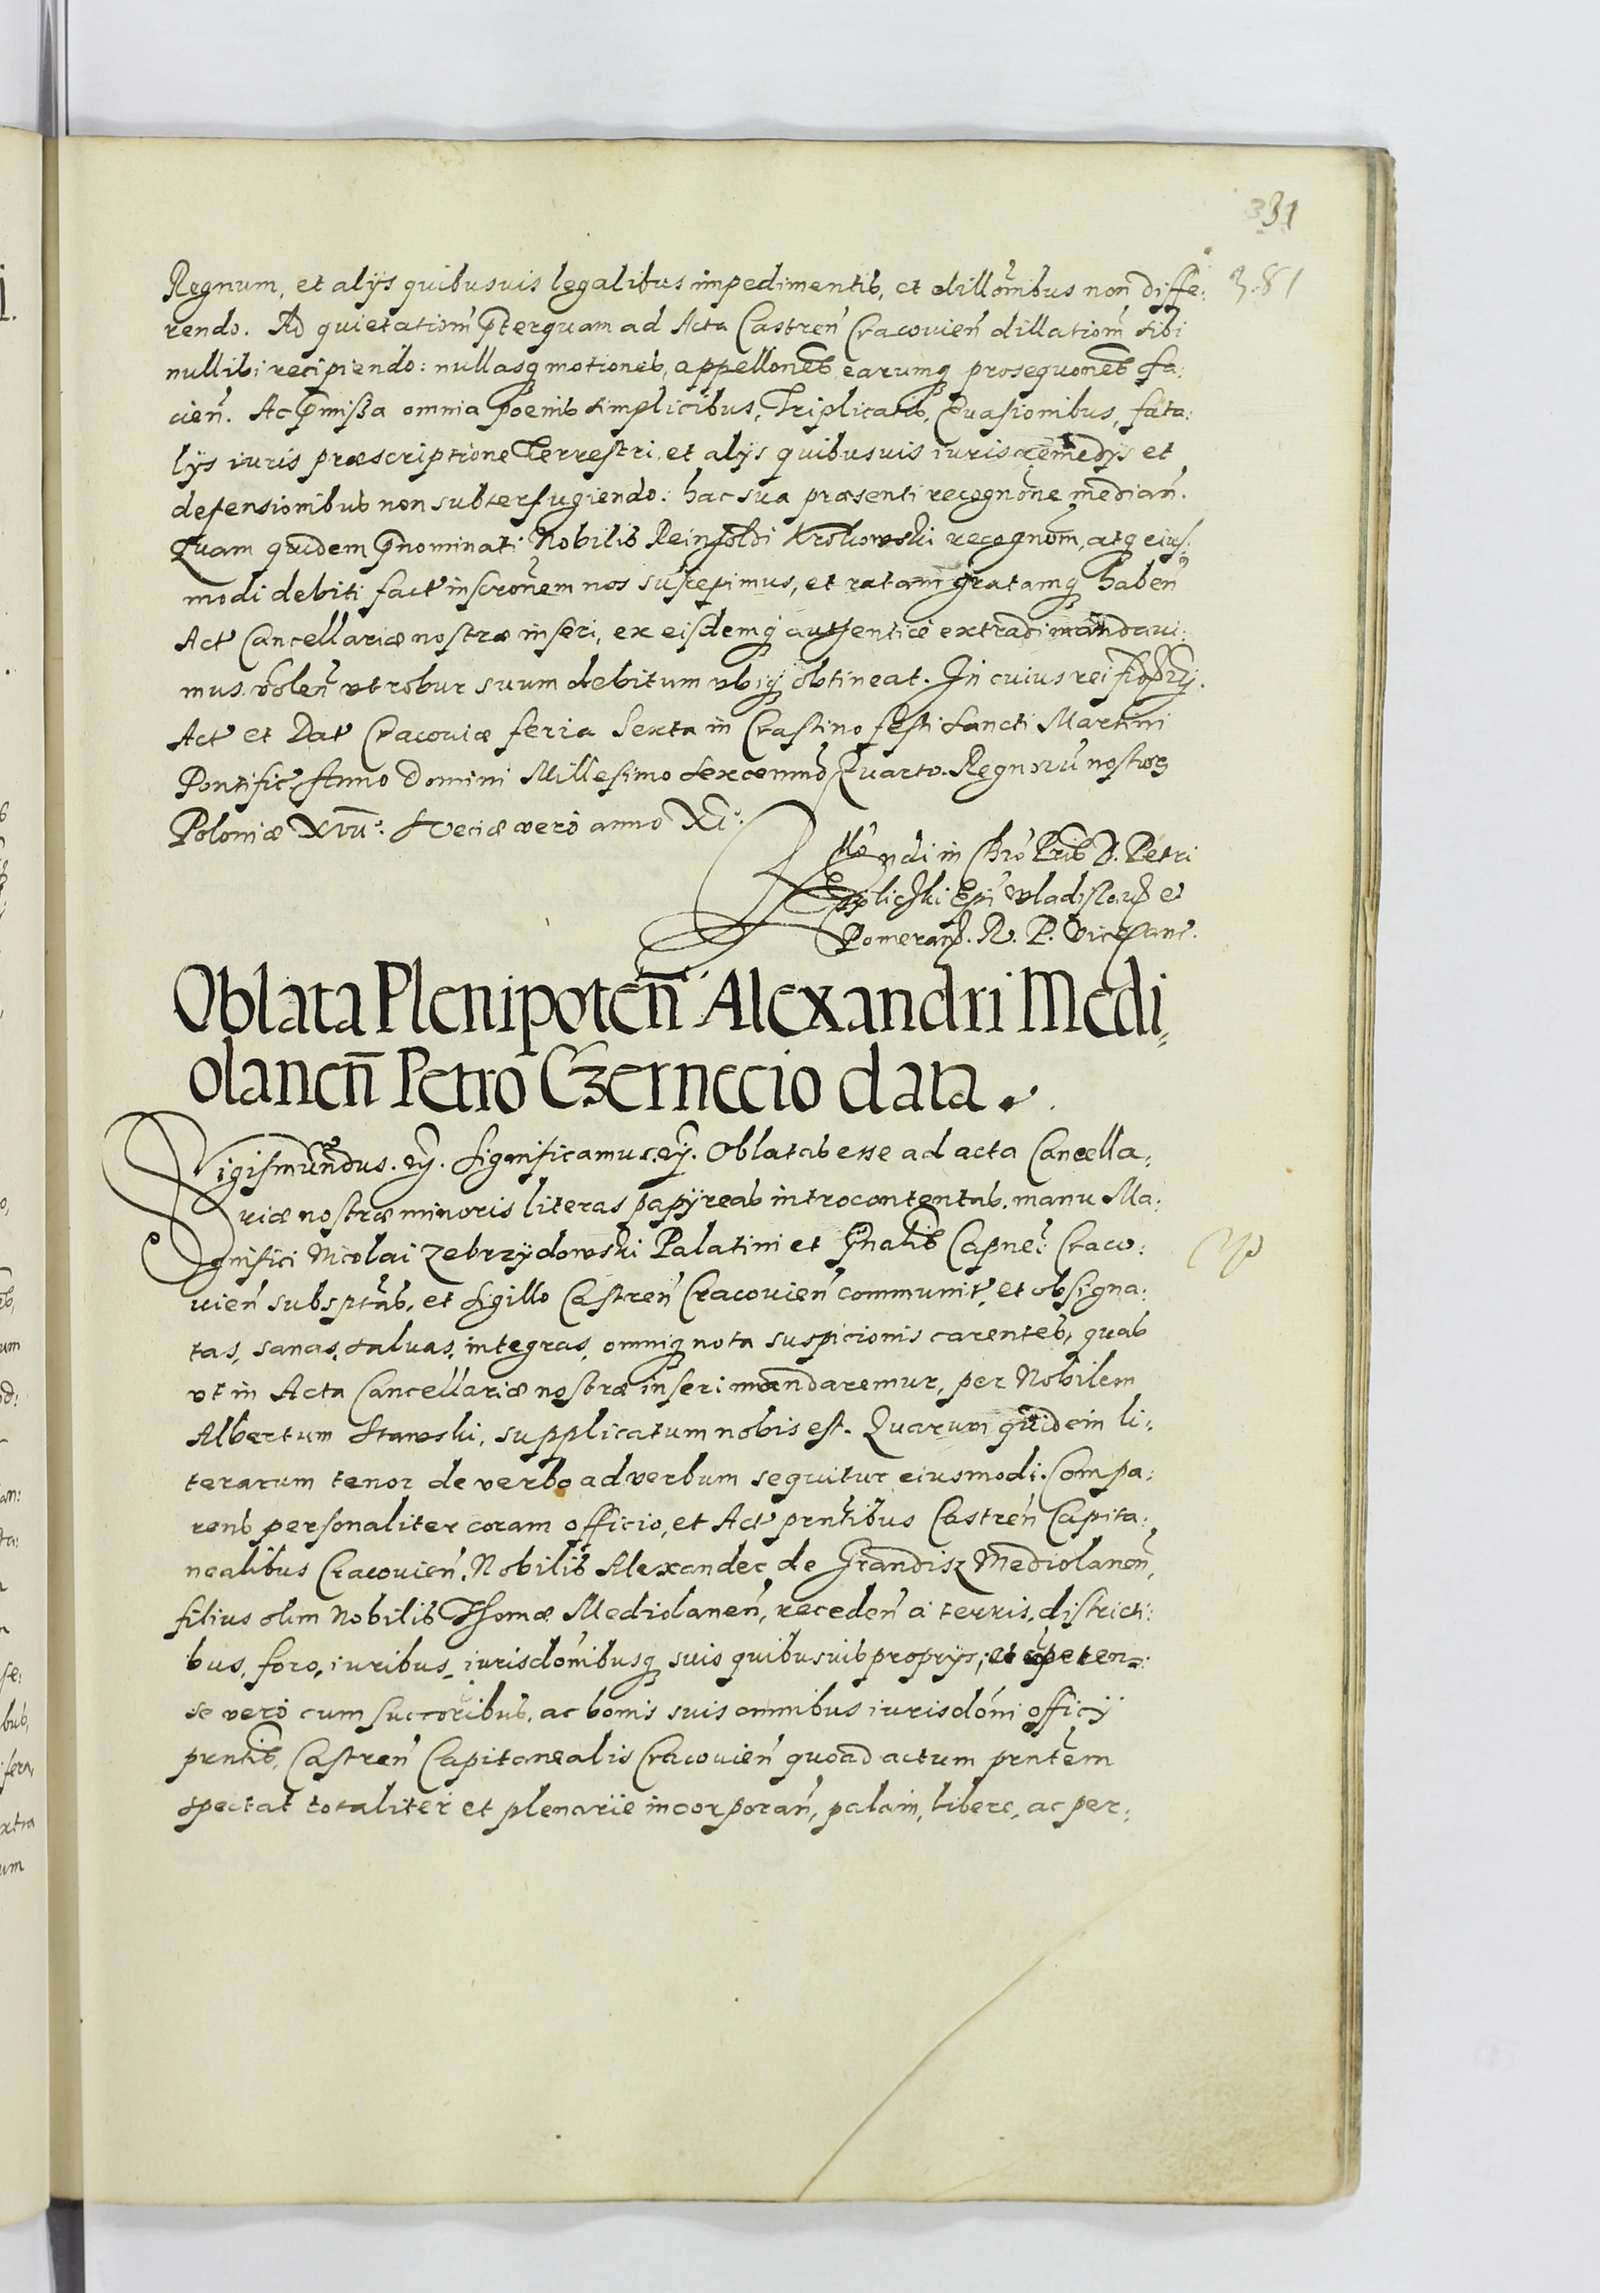 331
381
Regnum, et alijs quibusuis legalibus impedimentis, et dillonibus non diffe:
rendo. Ad quietationem pterquam ad Acta Castren Cracouien dillationem sibi
nullibi recipiendo: nullasq motiones, appellones earumq prosequones fa:
cien. Ac pmissa omnia poenis simplicibus, Triplicatis, Euasionibus, fata:
lijs iuris præscriptione Terrestri, et alijs quibusuis iuris remedijs et
defensionibus non subterfugiendo: hac sua præsenti recognone median.
Quam quidem pnominati Nobilis Reinholdi Krokowski recognom, atq eius
modi debiti fact inscronem nos suscepimus, et ratam gratamq haben
Act Cancellariæ nostræ inseri, ex eisdemq authentice extradi mandaui:
mus, volen vt robur suum debitum vbiq obtineat. In cuius rei
Act et Dat Cracouiæ feria Sexta in Crastino festi Sancti Martini
Pontific Anno Domini Millesimo Sexcenmo Quarto. Regnoru nostror
Poloniæ XVII. Sueciæ vero anno XI.
Rndi in Chro Pris D. Petri
Tylicski Epi Vladislaui et
Pomeran. R. P. Vicecanc.
Oblata Plenipoten Alexandri Medi
olanen Petro Czerneccio data.
Sigismundus. Significamus. Oblatas esse ad acta Cancella:
riæ nostræ minoris literas papyreas introcontentas, manu Ma:
gnifici Nicolai Zebrzydowski Palatini et Gnalis Capnei Craco:
uien subsptas, et Sigillo Castren Cracouien communit, et obsigna:
tas, sanas, saluas, integras, omniq nota suspicionis carentes, quas
vt in Acta Cancellariæ nostræ inseri mandaremur, per Nobilem
Albertum Stawski, supplicatum nobis est. Quarum quidem li:
terarum tenor de verbo ad verbum sequitur eiusmodi. Compa:
rens personaliter coram officio, et Act prntibus Castren Capita:
nealibus Cracouien, Nobilis Alexander de Grandis Mediolanen,
filius olim Nobilis Thomæ Mediolanen, receden a terris, districti:
bus, foro, iuribus, iurisdonibusq suis quibusuis proprijs, et
se vero cum succoribus, ac bonis suis omnibus iurisdoni officij
prntis, Castren Capitanealis Cracouien quoad actum prntem
spectat totaliter et plenarie incorporan, palam, libere, ac per: